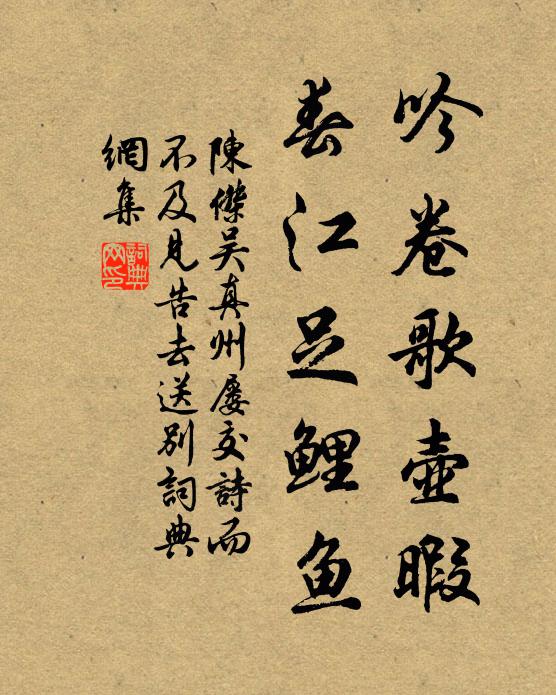 吟卷歌壺暇
春江足鯉魚
陳傑吴真州屡交詩而
不及見告去送别詞典
網集
詞典网印